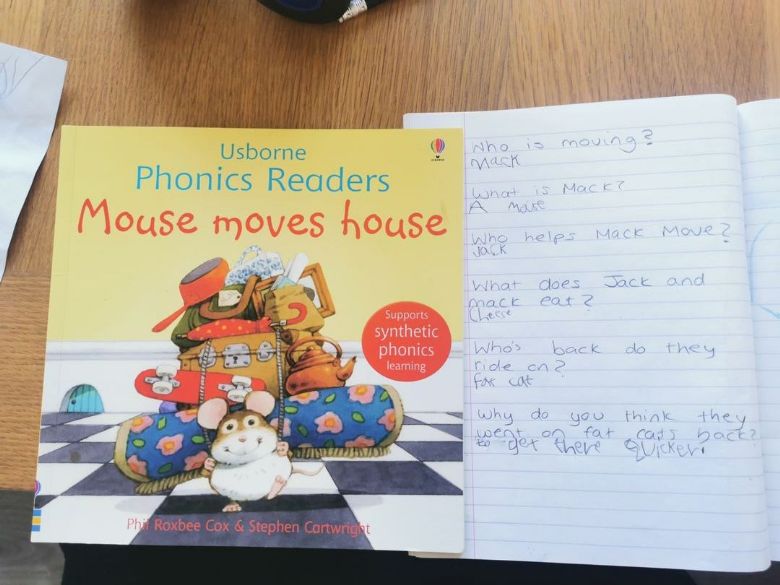 Usborne
Phonics Readers
Mouse moves house
Supports
synthetic
phonics
learning
Phil Roxbee Cox & Stephen Cartwright
Who is moving?
Mack
What is Mack?
A
Who helps Mack Move?
Jack
What does Jack and
mack eat?
Who's back do they
ride on?
fat cat
Why do you think they
went on fat cats back?
to get there Quicker.